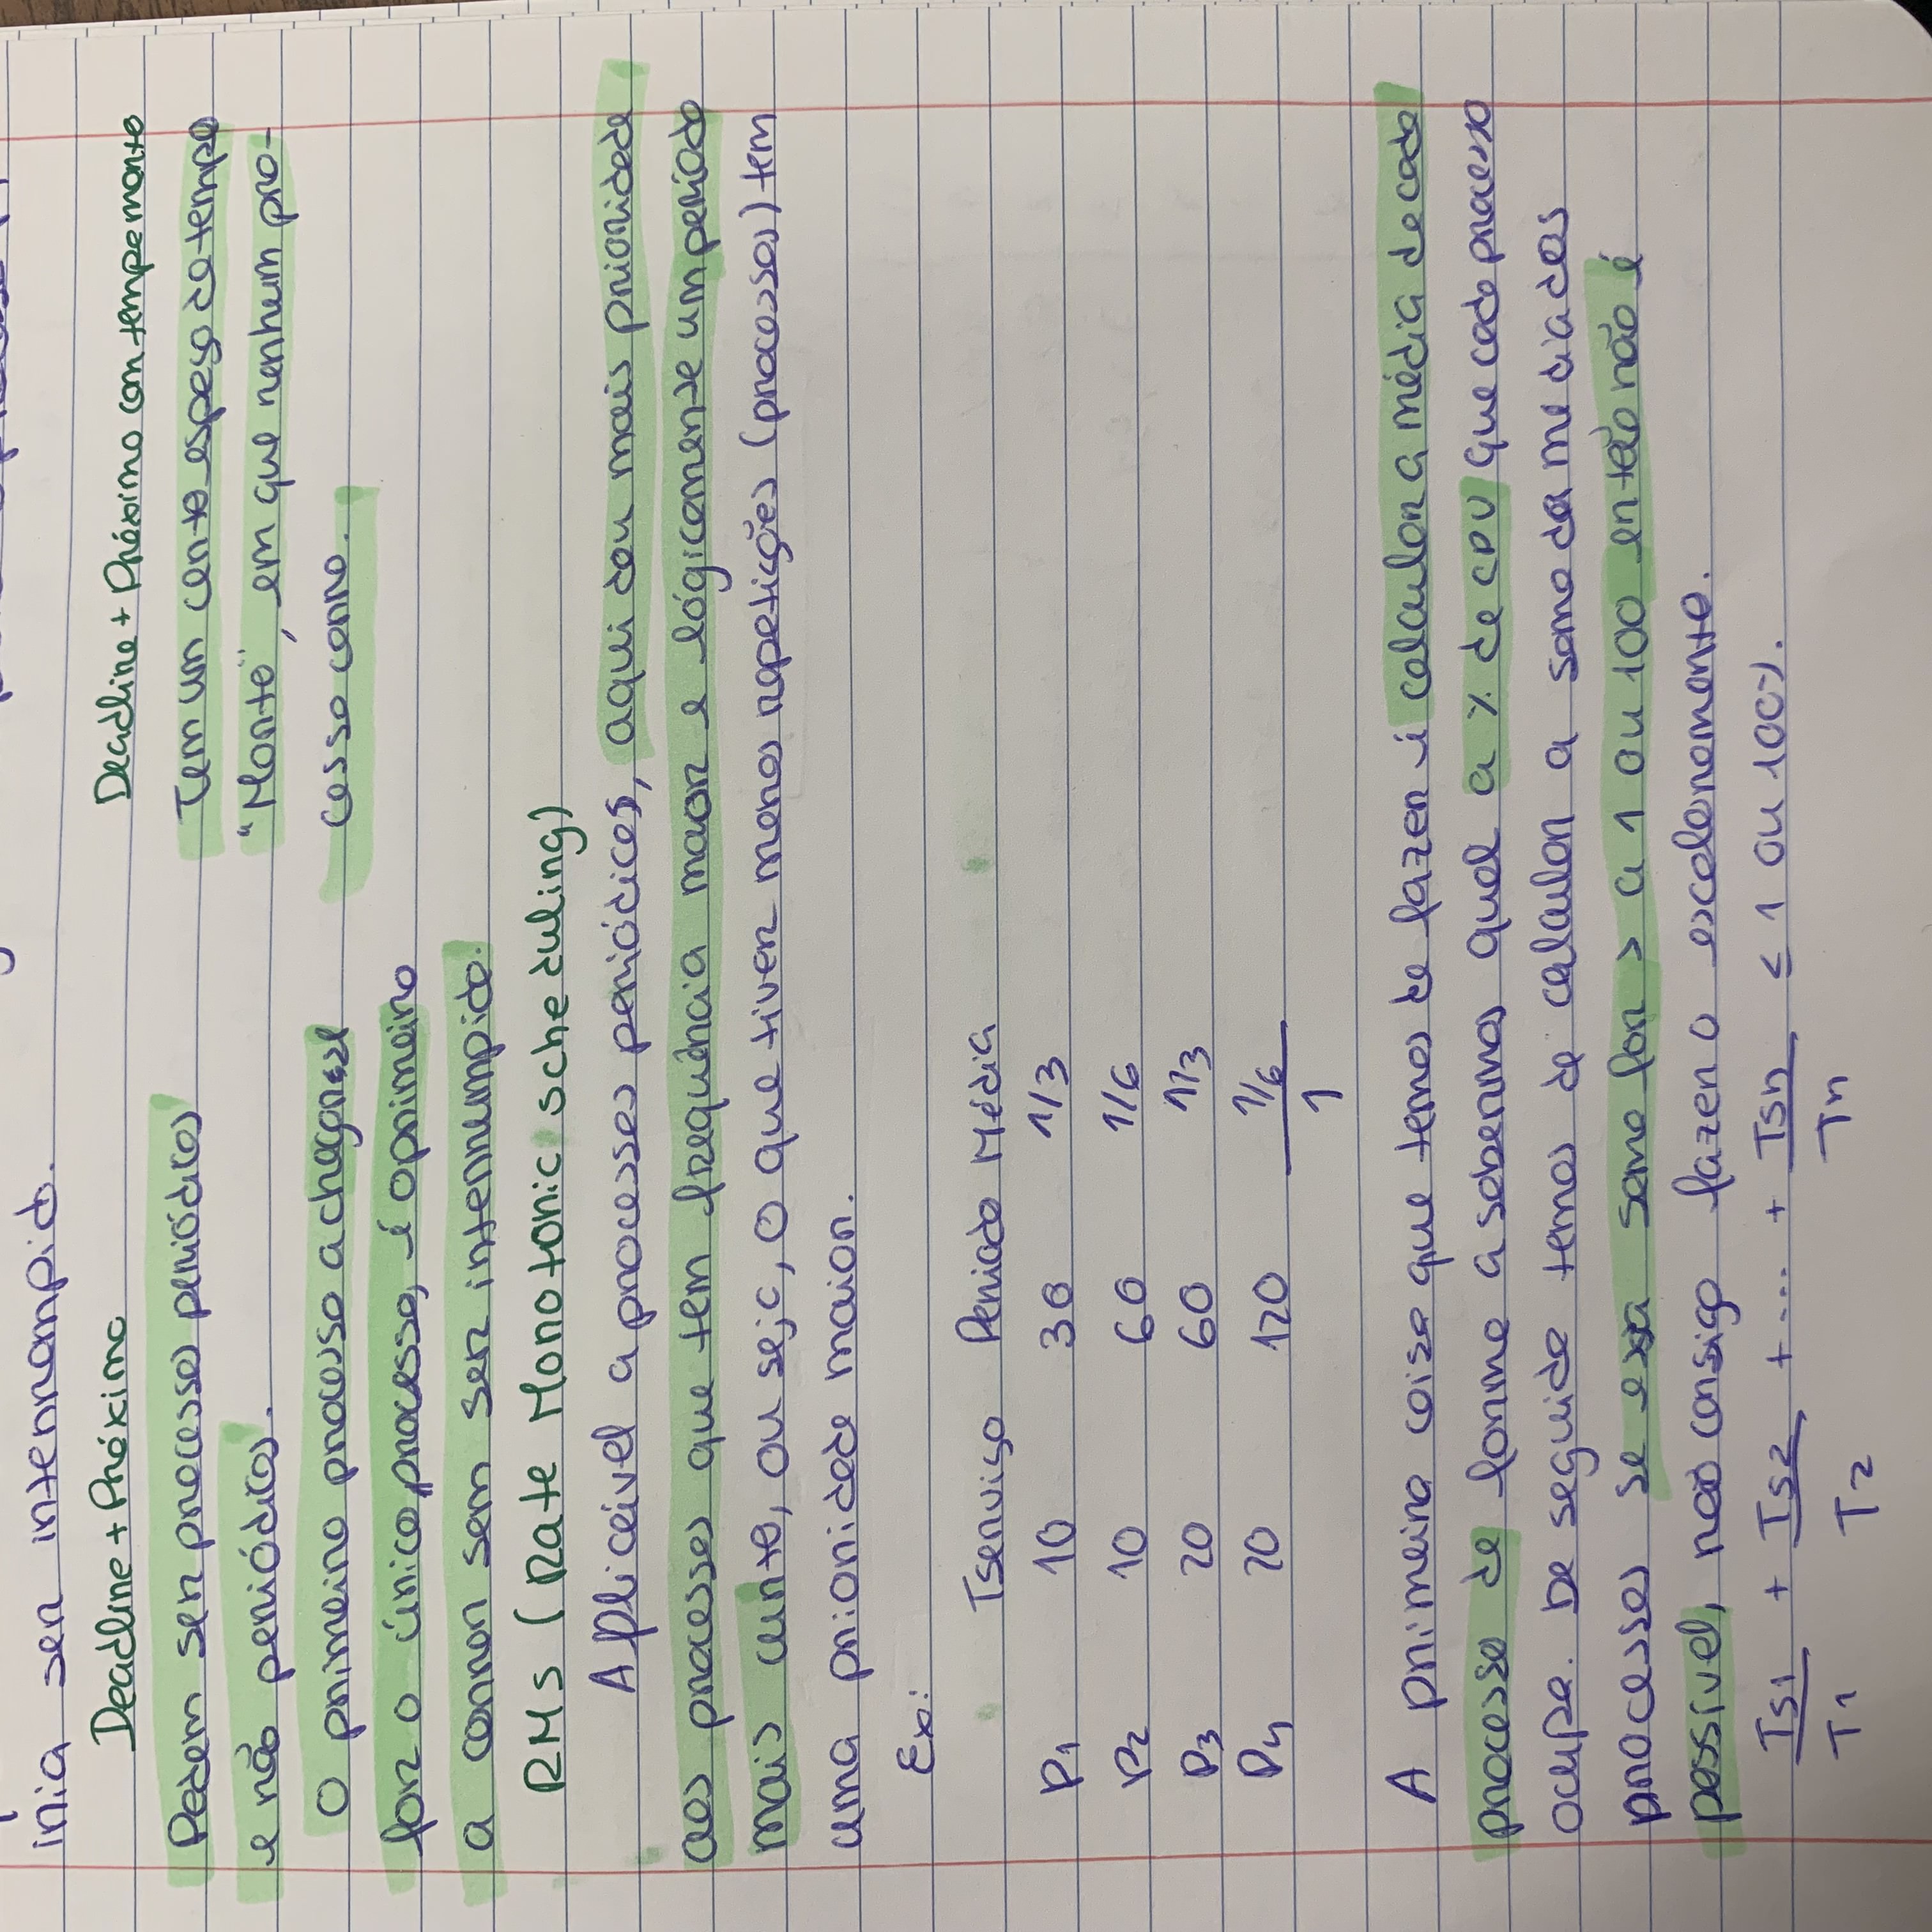 inia ser interrompido.
Deadline + Próximo
Podem ser processos periódicos
e não periódicos.
O primeiro processo a chegar se
for o único processo, é o primeiro
a correr sem ser interrumpido.
Deadline + Próximo com tempo morto
Tem um certo espeço de tempo
"Morto", em que nenhum pro-
cesso corre.
RMS (Rate Monotonic scheduling)
Apliceível a processos periódicos, aqui dou mais prioridade
aos processos que tem frequência maor e lógicamente um período
mais curto, ou seja, o que tiver menos repetições (processos) tem
uma prioridade maior.
Ex:
Tserviço Periodo Média
P1 10 30 1/3
P2 10 60 1/6
P3 20 60 1/3
P4 20 120 1/6
1
A primeira coisa que temos de fazer é calcular a média de cada
processo de forma a sabermos qual a % de CPU que cada processo
ocupa. De seguida temos de calcular a soma da media dos
processos se essa soma for > a 1 ou 100 então não é
possível, não consigo fazer o escalonamento.
Ts1 + Ts2 + ... + Tsn ≤ 1 ou 100%.
T1 T2 Tn